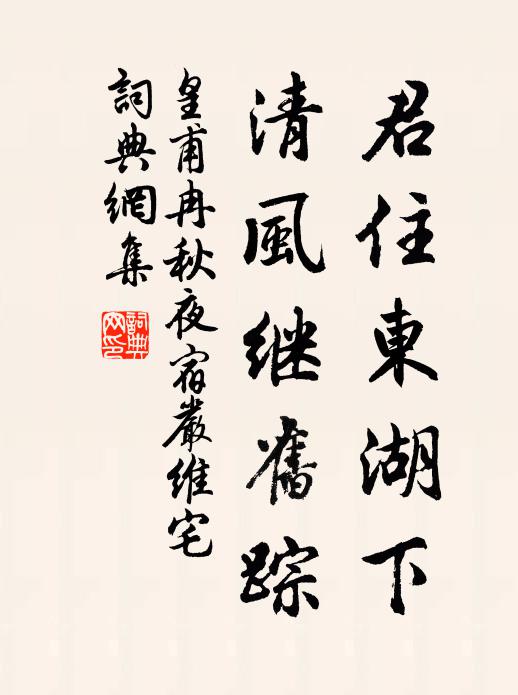 君住東湖下
清風继舊踪
皇甫冉秋夜宿嚴維宅
詞典網集
詞典
网印